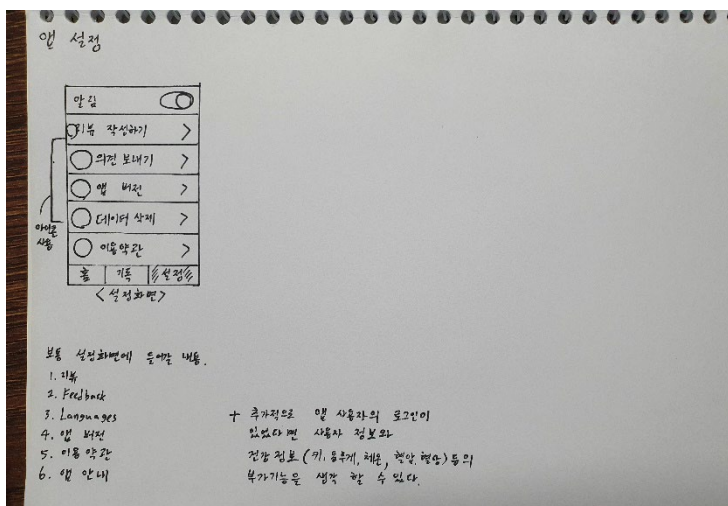 앱 설정
알림
리뷰 작성하기 >
의견 보내기 >
앱 버전 >
데이터 삭제 >
이용약관 >
아이콘
사용
홈 기록 설정
<설정화면>
보통 설정화면에 들어갈 내용.
1. 리뷰
2. Feedback
3. Languages
4. 앱 버전
5. 이용 약관
6. 앱 안내
+ 추가적으로 앱 사용자의 로그인이
있었다면 사용자 정보와
건강 정보 (키, 몸무게, 체온, 혈압, 혈당) 등의
부가기능을 생각 할 수 있다.